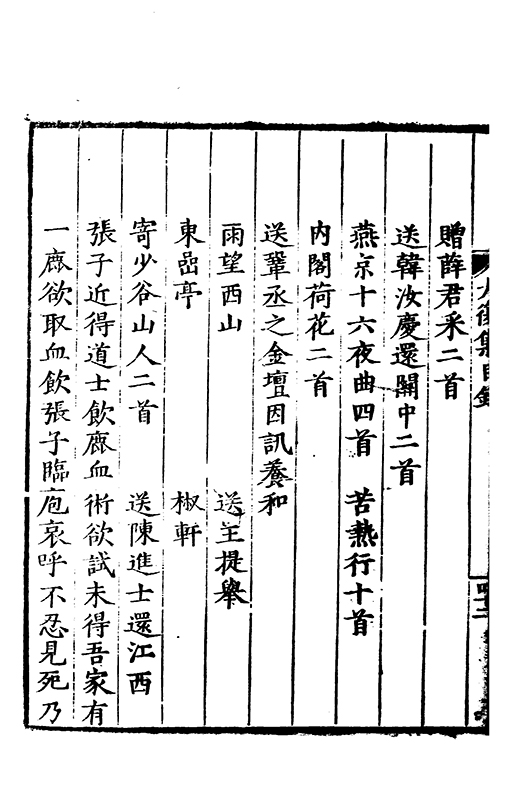 大復集目錄
贈薛君采二首
送韓汝慶還關中二首
燕京十六夜曲四首　苦熱行十首
内閣荷花二首
送鞏丞之金壇因訊養和
雨望西山　送王提舉
東嵒亭　椒軒
寄少谷山人二首　送陳進士還江西
張子近得道士飲麃血術欲試未得吾家有
一麃欲取血飲張子臨庖哀呼不忍見死乃